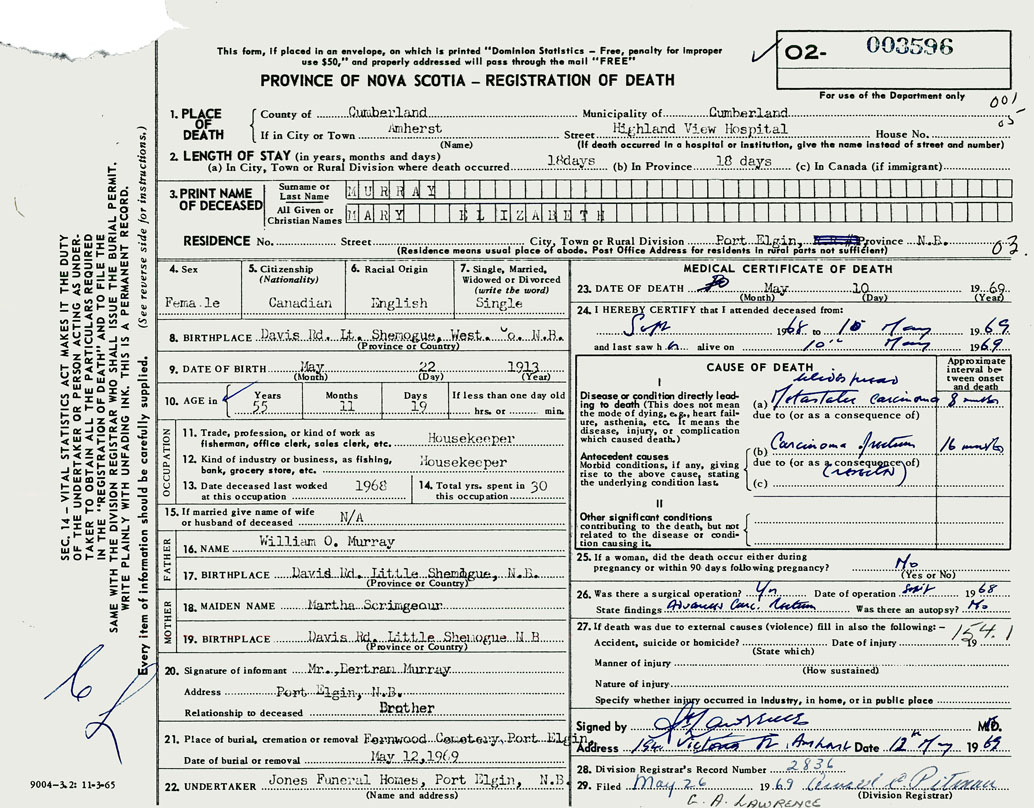 This form, if placed in an envelope, on which is printed "Dominion Statistics – Free, penalty for improper
use $50," and properly addressed will pass through the mail "FREE"
PROVINCE OF NOVA SCOTIA – REGISTRATION OF DEATH
O2- 003596
For use of the Department only
001
03
SEC. 14 – VITAL STATISTICS ACT MAKES IT THE DUTY
OF THE UNDERTAKER OR PERSON ACTING AS UNDER-
TAKER TO OBTAIN ALL THE PARTICULARS REQUIRED
IN THE "REGISTRATION OF DEATH" AND TO FILE THE
SAME WITH THE DIVISION REGISTRAR WHO SHALL ISSUE THE BURIAL PERMIT.
WRITE PLAINLY WITH UNFADING INK. THIS IS A PERMANENT RECORD.
Every item of information should be carefully supplied. (See reverse side for instructions.)
1. PLACE OF DEATH
County of Cumberland Municipality of Cumberland
If in City or Town Amherst Street Highland View Hospital House No.
(Name) (If death occurred in a hospital or institution, give the name instead of street and number)
2. LENGTH OF STAY (in years, months and days)
(a) In City, Town or Rural Division where death occurred 18days (b) In Province 18 days (c) In Canada (if immigrant)
3. PRINT NAME OF DECEASED
Surname or Last Name MURRAY
All Given or Christian Names MARY ELIZABETH
RESIDENCE No. Street City, Town or Rural Division Port Elgin, Province N.B.
(Residence means usual place of abode. Post Office Address for residents in rural parts not sufficient)
03
4. Sex Female
5. Citizenship (Nationality) Canadian
6. Racial Origin English
7. Single, Married, Widowed or Divorced (write the word) Single
8. BIRTHPLACE Davis Rd. Lt. Shemogue, West. o. N.B.
(Province or Country)
9. DATE OF BIRTH May 22 1913
(Month) (Day) (Year)
10. AGE in Years 55 Months 11 Days 19 If less than one day old hrs. or min.
OCCUPATION
11. Trade, profession, or kind of work as fisherman, office clerk, sales clerk, etc. Housekeeper
12. Kind of industry or business, as fishing, bank, grocery store, etc. Housekeeper
13. Date deceased last worked at this occupation 1968
14. Total yrs. spent in this occupation 30
15. If married give name of wife or husband of deceased N/A
FATHER
16. NAME William O. Murray
17. BIRTHPLACE David Rd. Little Shemogue, N.B.
(Province or Country)
MOTHER
18. MAIDEN NAME Martha Scrimgeour
19. BIRTHPLACE Davis Rd. Little Shemogue N.B
(Province or Country)
20. Signature of informant Mr. Bertram Murray
Address Port Elgin, N.B.
Relationship to deceased Brother
21. Place of burial, cremation or removal Fernwood Cemetery, Port Elgin,
Date of burial or removal May 12,1969
22. UNDERTAKER Jones Funeral Homes, Port Elgin, N.B.
(Name and address)
9004-3.2: 11-3-65
MEDICAL CERTIFICATE OF DEATH
23. DATE OF DEATH May 10 1969
(Month) (Day) (Year)
24. I HEREBY CERTIFY that I attended deceased from:
Sept 1968 to 10 May 1969
and last saw h er alive on 10th May 1969
CAUSE OF DEATH
Approximate interval between onset and death
I
Disease or condition directly leading to death (This does not mean the mode of dying, e.g., heart failure, asthenia, etc. It means the disease, injury, or complication which caused death.)
widespread
(a) Metastatic carcinoma 8 months
due to (or as a consequence of)
Antecedent causes
Morbid conditions, if any, giving rise to the above cause, stating the underlying condition last.
(b) Carcinoma rectum 16 months
due to (or as a consequence of)
(c)
II
Other significant conditions
contributing to the death, but not related to the disease or condition causing it.
25. If a woman, did the death occur either during pregnancy or within 90 days following pregnancy? No
(Yes or No)
26. Was there a surgical operation? Yes Date of operation Sept 1968
State findings Advanced Carc. Rectum Was there an autopsy? No
27. If death was due to external causes (violence) fill in also the following: –
154.1
Accident, suicide or homicide? Date of injury 19
(State which)
Manner of injury
(How sustained)
Nature of injury
Specify whether injury occurred in Industry, in home, or in public place
Signed by Lawrence M.D.
Address Victoria St, Amherst Date 12th May 1969
28. Division Registrar's Record Number 2836
29. Filed May 26 1969 Pitman
(Division Registrar)
G. A. LAWRENCE